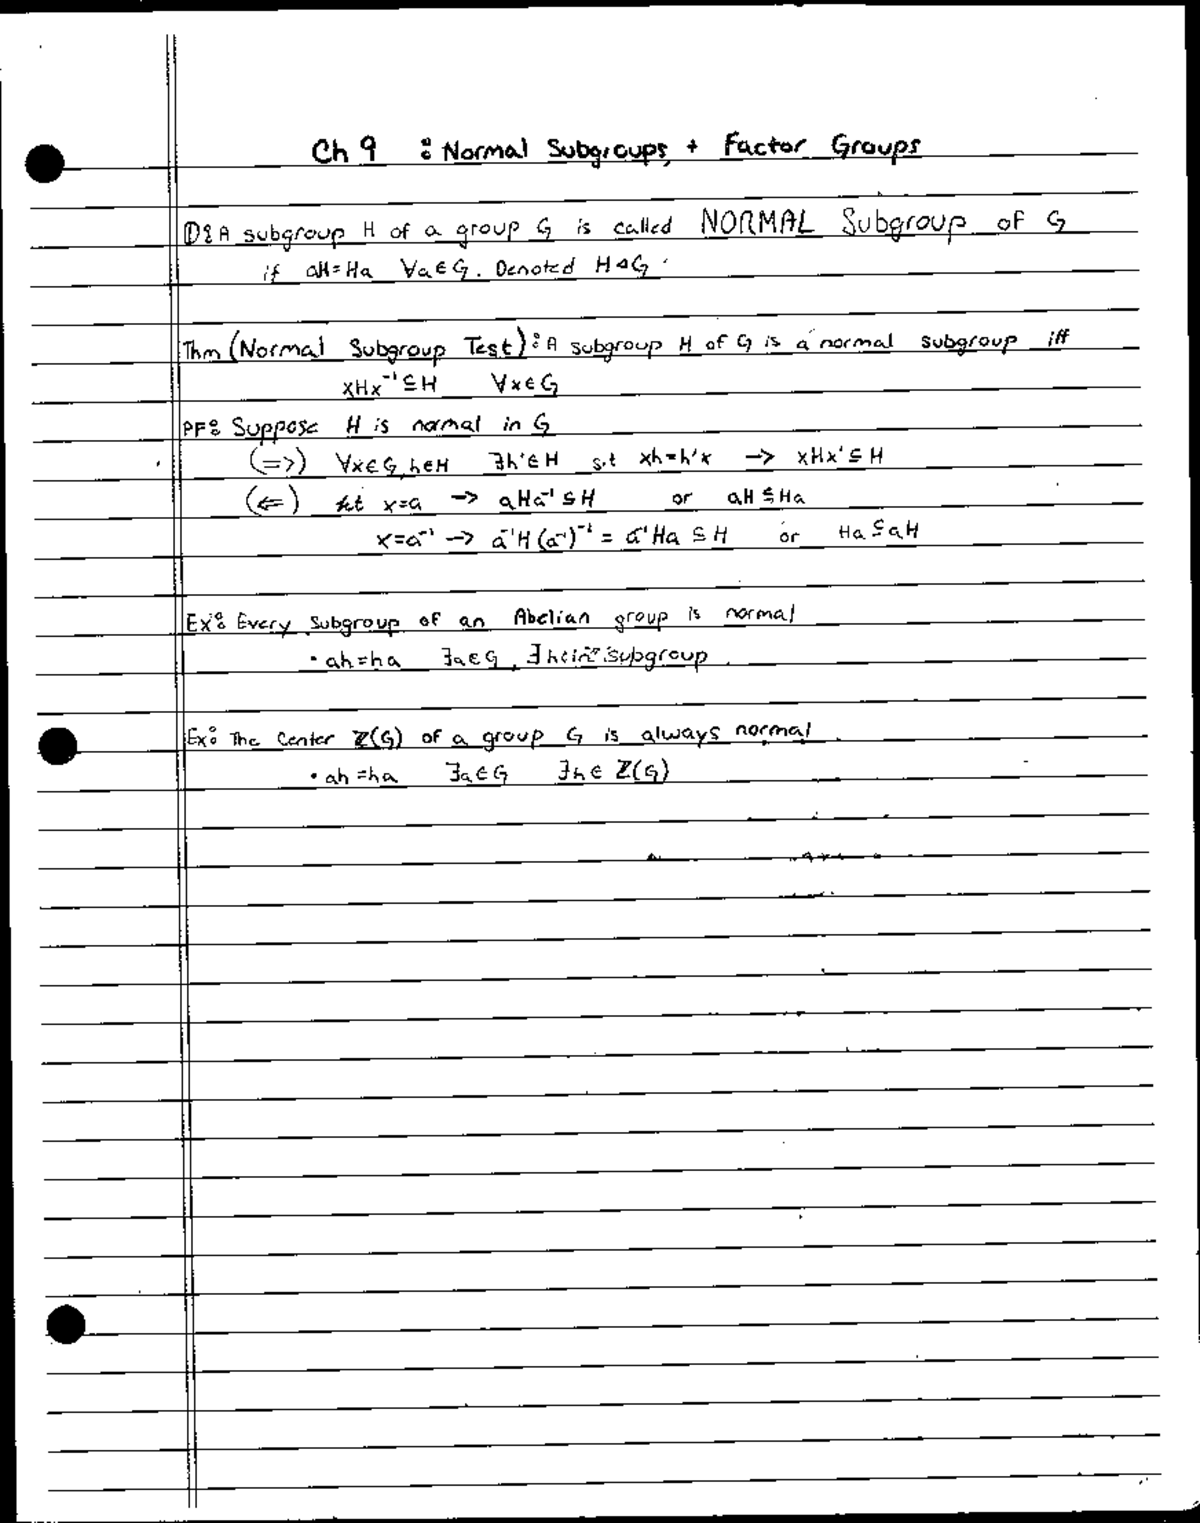 Ch 9 : Normal Subgroups + Factor Groups
D: A subgroup H of a group G is called NORMAL Subgroup of G
if aH=Ha ∀a∈G. Denoted H⊲G
Thm (Normal Subgroup Test): A subgroup H of G is a normal subgroup iff
xHx⁻¹⊆H ∀x∈G
PF: Suppose H is normal in G
(=>) ∀x∈G, h∈H ∃h'∈H s.t xh=h'x -> xHx'⊆H
(<=) let x=a -> aHa⁻¹⊆H or aH⊆Ha
x=a⁻¹ -> a⁻¹H(a⁻¹)⁻¹ = a⁻¹Ha ⊆H or Ha⊆aH
Ex: Every Subgroup of an Abelian group is normal
• ah=ha ∃a∈G, ∃h∈ subgroup
Ex: The Center Z(G) of a group G is always normal
• ah=ha ∃a∈G ∃h∈ Z(G)